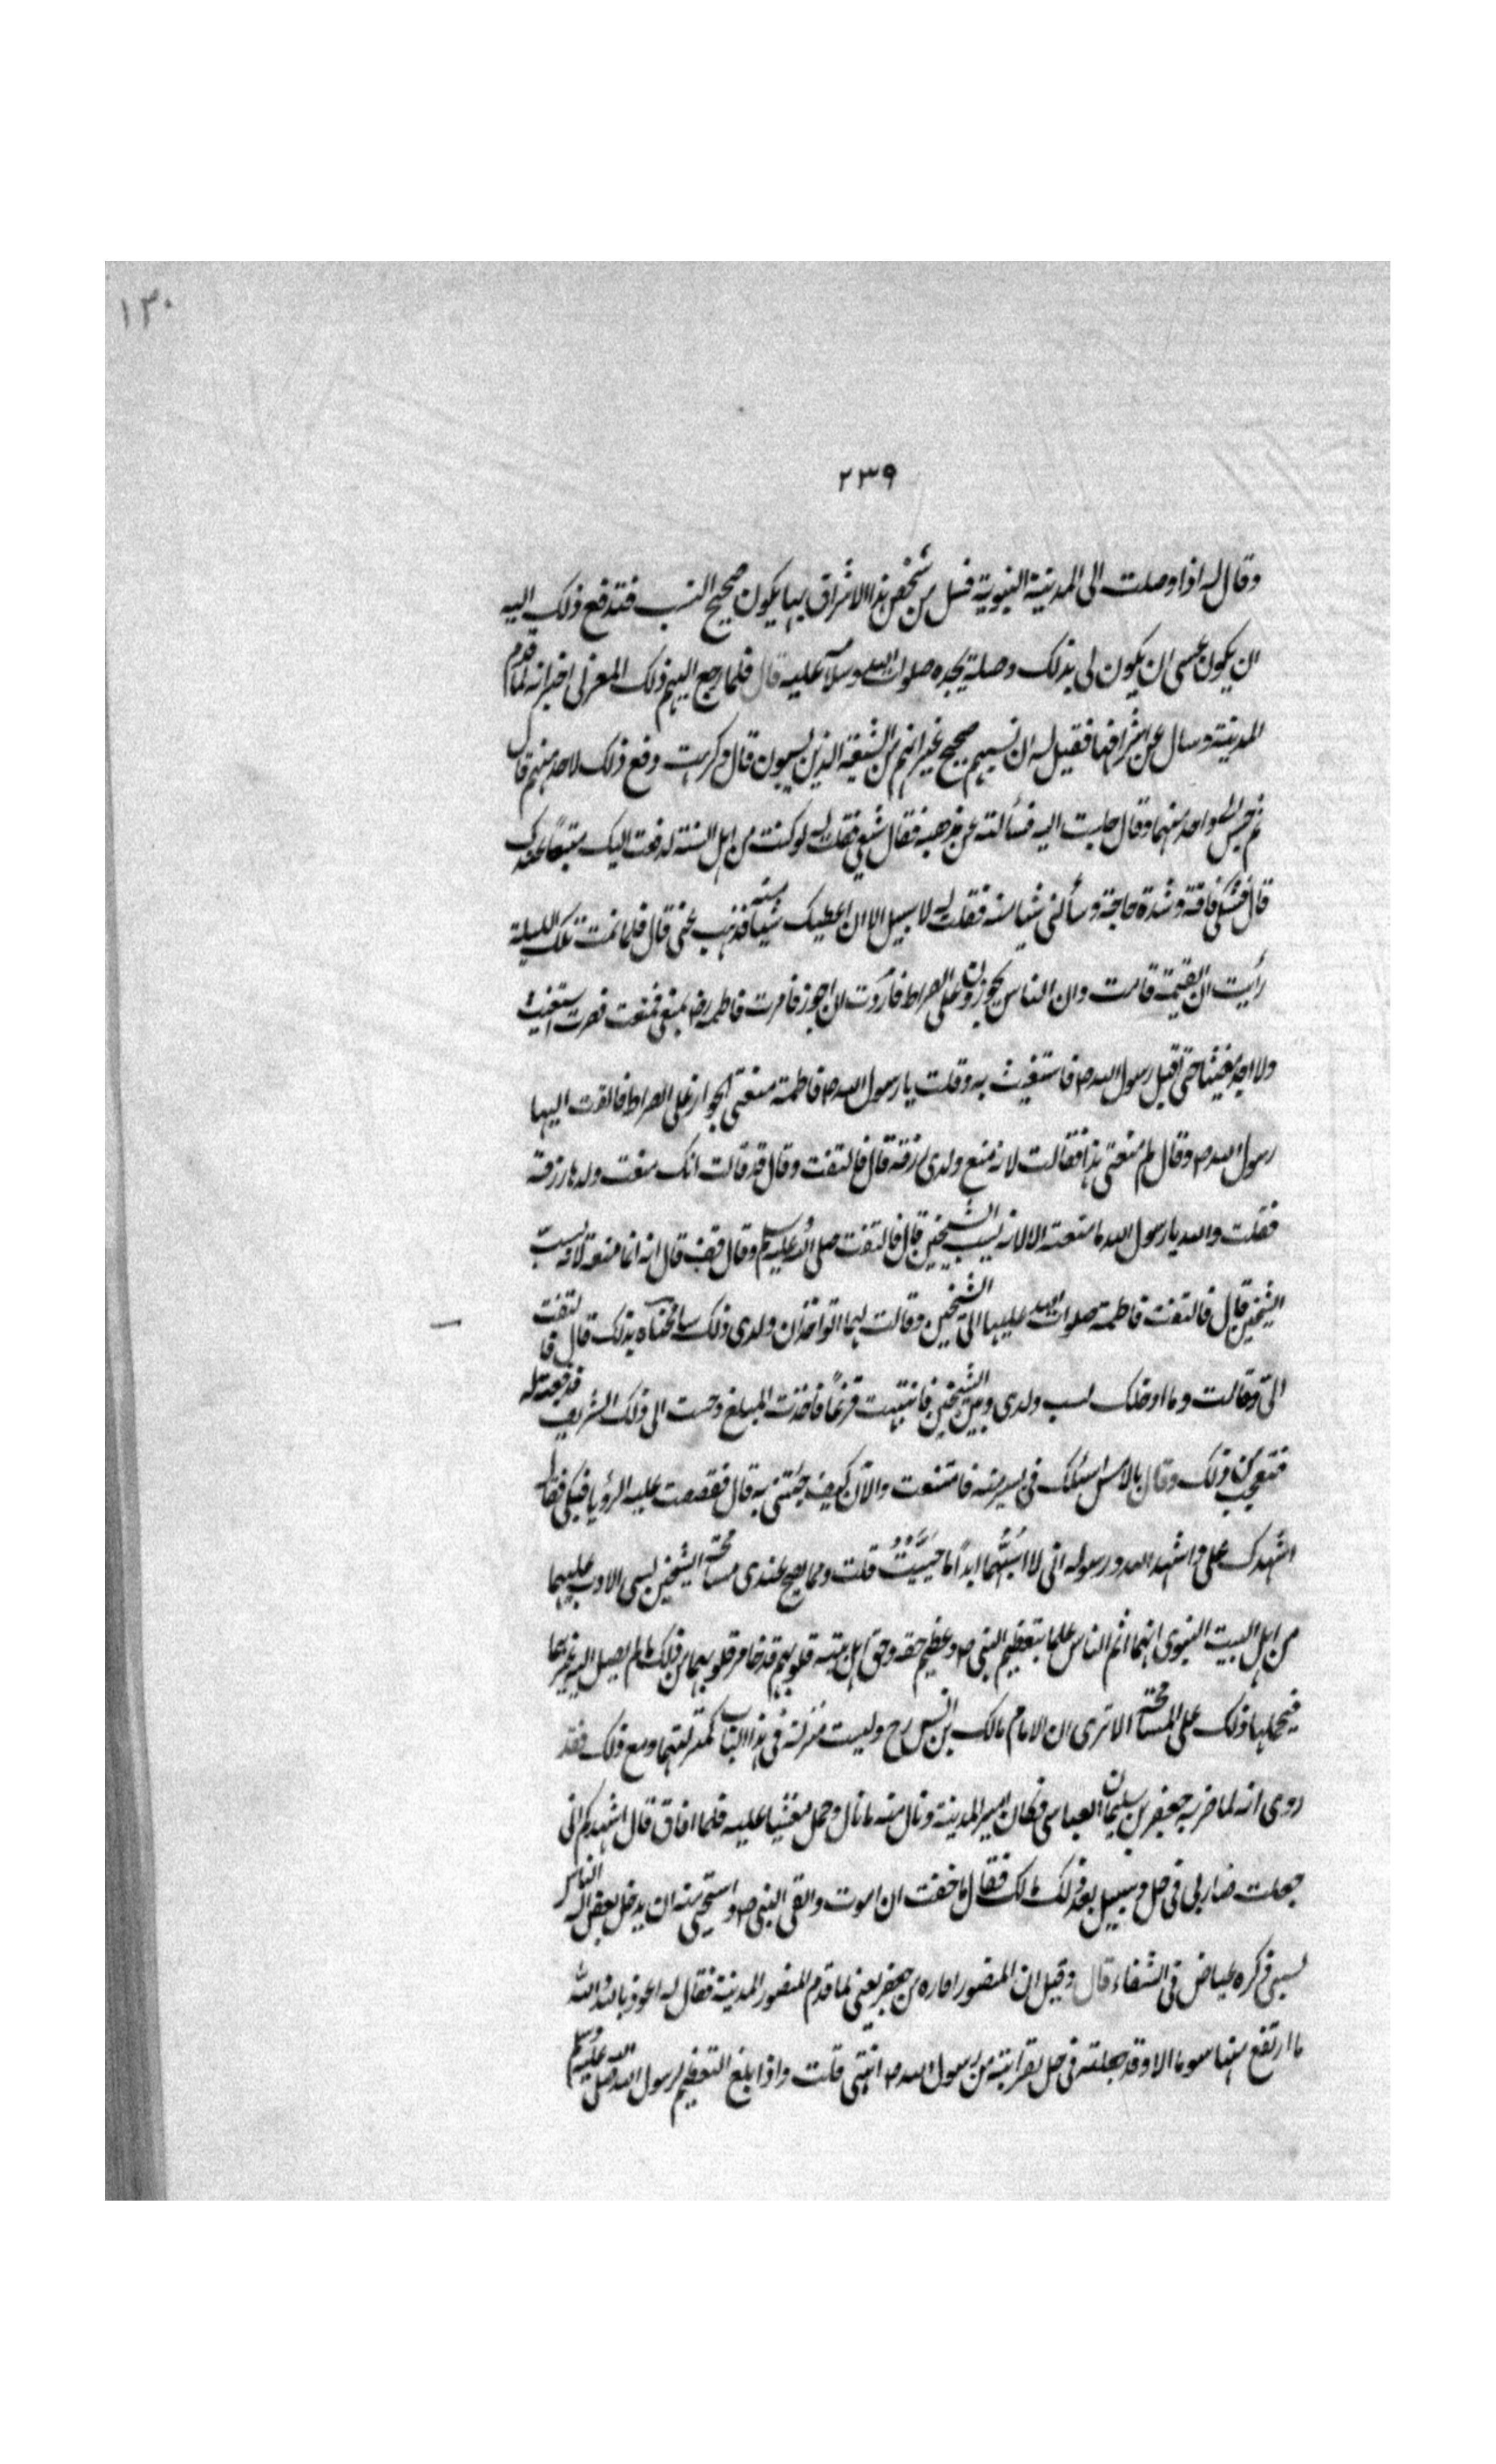 ١٣٠
٢٣٩
وقال له اذا وصلت الى المدينة النبوية فسل من شخص بهذا الاشراف بها يكون صحيح النسب فتدفع ذلك اليه
ان يكون عسى ان يكون لى بذلك وصلة بجده صلوات الله وسلامه عليه قال فلما رجع اليهم ذلك المغربى اخبر انه لما قدم
المدينة وسال عن اشرافها فقيل له ان نسبهم صحيح غير انهم من الشيعة الذين يسبون قال وكرهت دفع ذلك لاحد منهم قال
ثم جلس الى واحد منهم او قال جلست اليه فسألته عن مذهبه فقال شيعى فقلت له لو كنت من اهل السنة لدفعت اليك مبتغاك عندى
قال فشكى فاقة وشدة حاجة وسألنى شيا منه فقلت له لا سبيل الا ان اعطيك شيئا منه فذهب عنى قال فلما نمت تلك الليلة
رأيت ان القيمة قامت وان الناس يجوزون على الصراط فأردت ان اجوز فامرت فاطمة رضـ بمنعى فمنعت فصرت استغيث
ولا اجد مغيثا حتى اقبل رسول الله صـ فاستغيث به وقلت يا رسول الله صـ فاطمة منعتنى الجواز على الصراط فالتفت اليها
رسول الله صـ وقال لم منعتى هذا فقالت لانه منع ولدى رزقه قال فالتفت وقال قد قالت انك منعت ولدها رزقه
فقلت والله يا رسول الله ما منعته الا لانه يسب الشيخين قال فالتفت صلى الله عليه وسلم وقال قف قال انه انما منعه لانه يسب
الشيخين قال فالتفت فاطمة صلوات الله عليها الى الشيخين وقالت لهما اتواخذان ولدى ذلك سامحناه بذلك قال فالتفت
الى وقالت وما ادخلك لسب ولدى وبين الشيخين فانتبهت فزعاً فاخذت المبلغ وجئت الى ذلك الشريف فدفعته له
فتعجب من ذلك وقال بالامس اسئلك فى يسير منه فامتنعت والآن كيف جئتنى به قال فقصصت عليه الرؤيا فبكى فقال
اشهدك على واشهد الله ورسوله انى لا اسبهما ابداً ما حييت قلت ومما يصح عندى مسامحة الشيخين لسى الادب عليهما
من اهل البيت النبوى انهما اتم الناس علما بتعظيم النبى صـ وعظيم حقه وحق اهل بيته قلوبهم قد خامر قلوبهما من ذلك ما لم يصل اليه غيرهما
فيحملها ذلك على المسامحة الا ترى ان الامام مالك بن انس رح وليست منزلة فى هذا الباب كمنزلتهما ومع ذلك فقد
روى انه لما ضربه جعفر بن سليمان العباسى وكان امير المدينة ونال منه ما نال وحمل مغشيا عليه فلما افاق قال اشهدكم انى
جعلت ضاربى فى حل وسئل بعد ذلك مالك فقال ما خفت ان اموت والقى النبى صـ واستحيى منه ان يدخل بعض اله النار
بسببى ذكره عياض فى الشفاء قال وقيل ان المنصور اقاده من جعفر يعنى لما قدم المنصور المدينة فقال له اعوذ بالله والله
ما ارتفع منها سوط الا وقد جعلته فى حل لقرابته من رسول الله صـ انتهى قلت واذا بلغ التعظيم لرسول الله صلى الله عليه وسلم